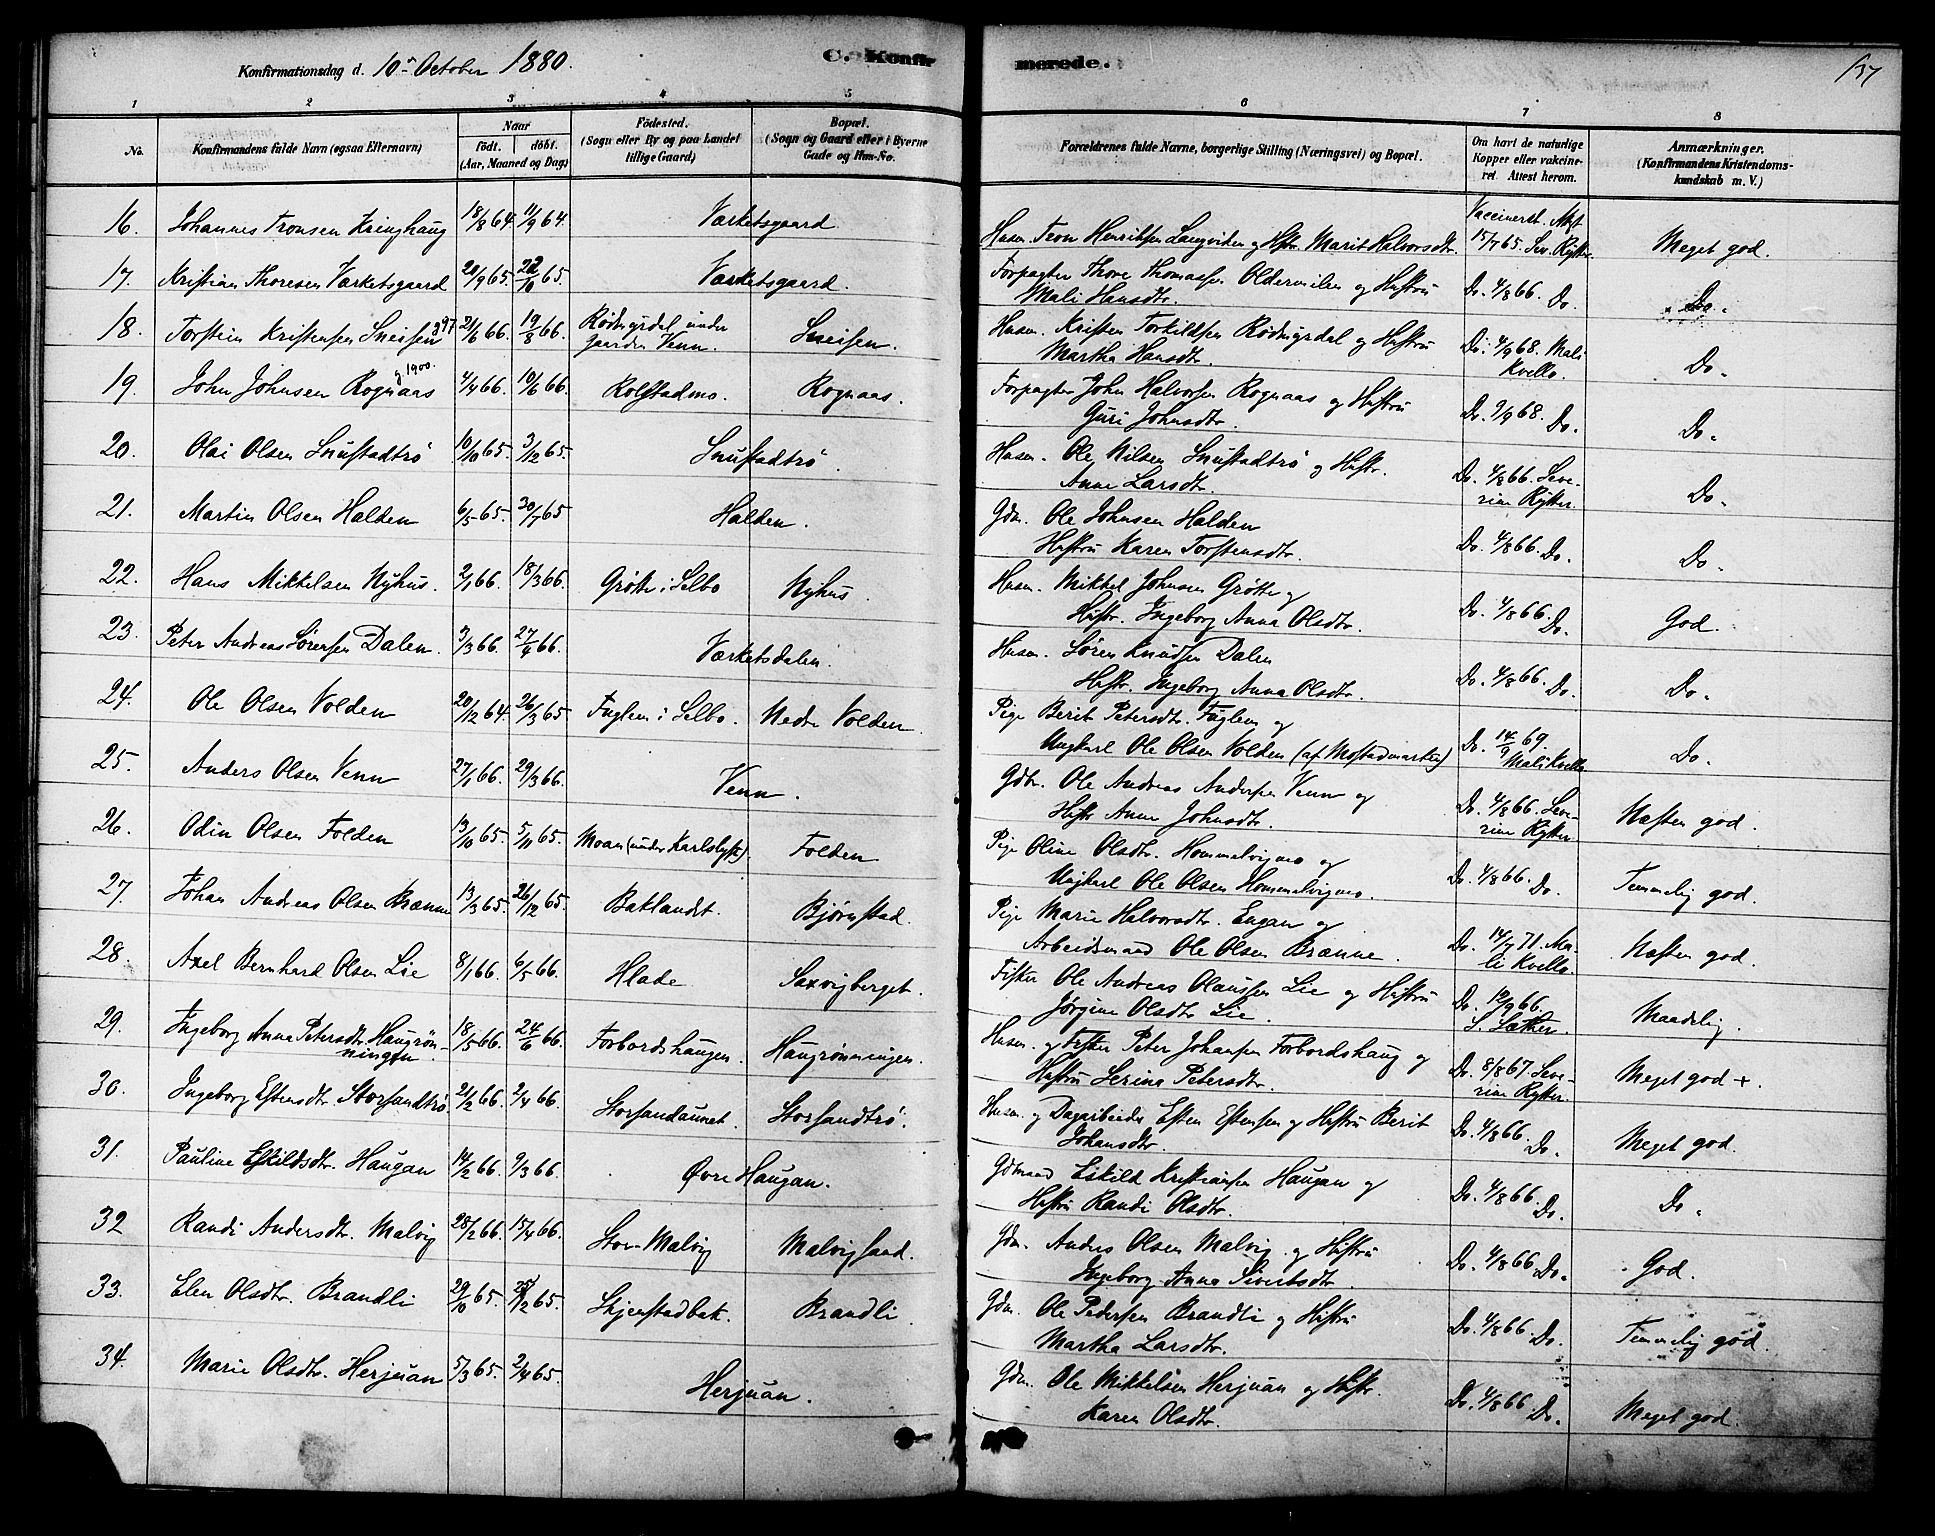 Konfirmationsdag d. 10de October 1880.
C. Konfir merede.
137
1 2 3 4 5 6 7 8
No.
Konfirmandens fulde Navn (ogsaa Efternavn)
Naar
født. døbt.
(Aar, Maaned og Dag)
Fødested.
(Sogn eller By og paa Landet
tillige Gaard)
Bopæl.
(Sogn og Gaard eller i Byerne
Gade og Hus-No.
Forældrenes fulde Navne, borgerlige Stilling (Næringsvei) og Bopæl.
Om havt de naturlige
Kopper eller vakcine-
ret. Attest herom.
Anmærkninger.
(Konfirmandens Kristendoms-
kundskab m. V.)
16. Johannes Tronsen Kringhaug 18/8 64. 11/9 64. Værketsgaard Husm. Tron Henriksen Langviden og Hstr. Marit Halvorsdtr. Vaccineret. Att. 15/7 65. Sev. Rytter. Meget god.
17. Kristian Thoresen Værketsgaard 20/9 65. 22/10 65. Værketsgaard. Forpagter Thore Thomassen Oldermelen og Hustru
Mali Hansdtr. Do. 4/8 66. Do. Do.
18. Torstein Kristensen Sneisen 21/6 66. 19/8 66. Rødmyrdal under
gaarden Venn. Sneisen. Husm. Kristen Torkildsen Rødmyrdal og Hustru
Martha Hansdtr. Do. 4/9 68. Mali
Kvello. Do.
19. John Johnsen Rognaas 4/4 66. 10/6 66. Rolfstadmo. Rognaas. Forpagter John Halvorsen Rognaas og Hustru
Guri Johnsdtr. Do. 9/9 68. Do. Do.
20. Olai Olsen Snustadtrø 10/10 65. 3/12 65. Snustadtrø. Husm. Ole Nilsen Snustadtrø og Hustr.
Anne Larsdtr. Do. 4/8 66. Seve-
rine Rytter. Do.
21. Martin Olsen Halden 6/5 65. 30/7 65 Halden. Gdm. Ole Johnsen Halden
Hustru Karen Torstensdtr. Do. 4/8 66. Do. Do.
22. Hans Mikkelsen Nyhus. 2/1 66. 18/3 66. Grøtte i Selbo Nyhus. Husm. Mikkel Johnsen Grøtte og
Hustr. Ingeborg Anna Olsdtr. Do. 4/8 66. Do. God.
23. Peter Andreas Sørensen Dalen. 3/3 66. 27/4 66. Værketsdalen. Husm. Søren Knudsen Dalen
Hustr. Ingeborg Anna Olsdtr. Do. 4/8 66. Do. Do.
24. Ole Olsen Volden 20/12 64. 26/3 65. Fuglem i Selbo. Nedre Volden. Pige Berit Petersdtr. Fuglem og
Ungkarl Ole Olsen Volden (af Mostadmarken) Do. 14/9 69.
Mali Kvello Do.
25. Anders Olsen Venn 27/1 66. 29/3 66. Venn. Gdbr. Ole Andreas Andersen Venn og
Hustr. Anne Johnsdtr. Do. 4/8 66. Seve-
rine Rytter. Næsten god.
26. Odin Olsen Folden 13/10 65. 5/11 65. Moan (under Karlslyst). Folden Pige Oline Olsdtr. Hommelvigmo og
Ungkarl Ole Olsen Hommelvigmo. Do. 4/8 66. Do. Temmelig god.
27. Johan Andreas Olsen Brænne 13/3 65. 26/12 65. Baklandet. Bjørnstad. Pige Marie Halvorsdtr. Engan og
Arbeidsmand Ole Olsen Brænne. Do. 14/7 71. Ma-
li Kvello. Næsten god.
28. Axel Bernhard Olsen Lie 8/1 66. 6/5 66. Hlade Saxvigberget. Fisker Ole Andreas Olaussen Lie og Hustru
Jørgine Olsdtr. Lie. Do. 12/9 66.
S. Sæther. Maadelig.
29. Ingeborg Anna Petersdtr. Haugrøn-
ningen. 18/5 66. 24/6 66. Forbordshaugen. Haugrønningen. Husm. og Fisker Peter Johansen Forbordshaug og
Hustru Serina Petersdtr. Do. 8/8 67. Seve-
rine Rytter. Meget god +.
30. Ingeborg Estensdtr. Storsandtrø 21/2 66. 2/4 66. Storsandaunet. Storsandtrø. Husm. og Dagarbeider Esten Estensen og Hustru Berit
Johansdtr. Do. 4/8 66. Do. Meget god.
31. Pauline Eskildsdtr. Haugan 14/2 66. 9/3 66. Øvre Haugan. Gdmand Eskild Kristiansen Haugan og
Hustru Randi Olsdtr. Do. 4/8 66. Do. Do.
32 Randi Andersdtr. Malvig 28/2 66. 15/4 66. Stor-Malvig Malvigsand. Gdm. Anders Olsen Malvig og Hustru
Ingeborg Anna Sivertsdtr. Do. 4/8 66. Do. God.
33. Elen Olsdtr. Brandli 29/10 65. 25/12 65. Skjenstadbak. Brandli. Gdm. Ole Pedersen Brandli og Hustru
Martha Larsdtr. Do. 4/8 66. Do. Temmelig god.
34. Marie Olsdtr. Herjuan 5/3 65. 2/4 65. Herjuan. Gdm. Ole Mikkelsen Herjuan og Hustr.
Karen Olsdtr. Do. 4/8 66. Do. Meget god.